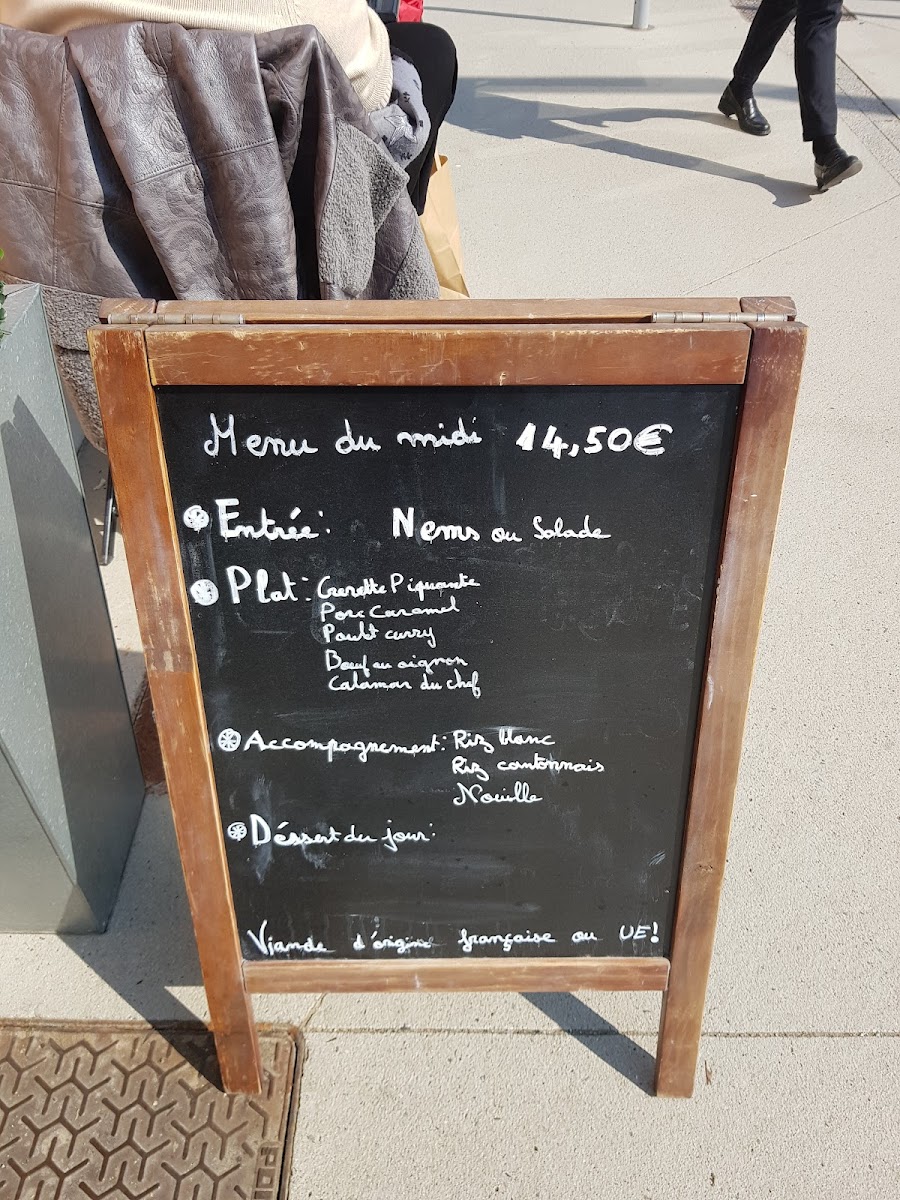 Menu du midi 14,50€
Entrée: Nems ou Salade
Plat: Crevette Piquante
Porc Caramel
Poulet curry
Bœuf au oignon
Calamar du chef
Accompagnement: Riz blanc
Riz cantonnais
Nouille
Déssert du jour:
Viande d'origine française ou UE!